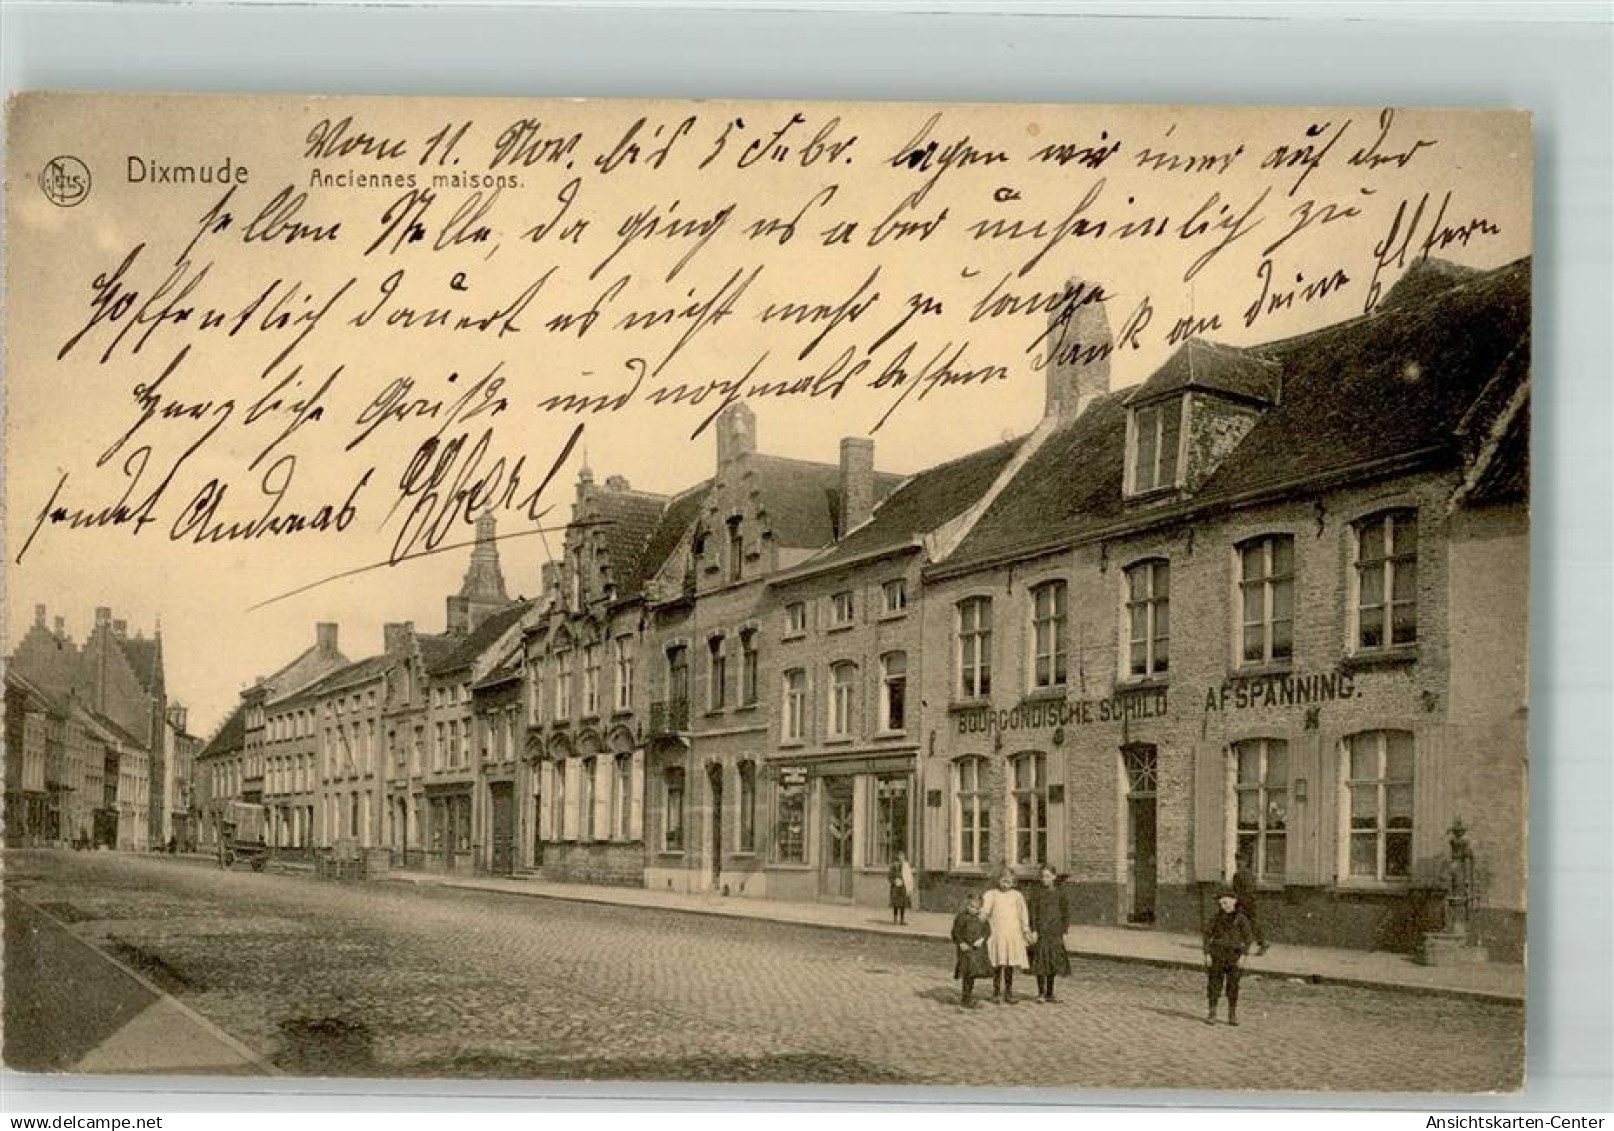 Vom 11. Nov. bis 5 Febr. lagen wir imer auf der
NELS
Dixmude
Anciennes maisons.
selben Stelle, da ging es aber unheimlich zu
Hoffentlich dauert es nicht mehr zu lange
Herzliche Grüße und nochmals besten Dank an deine Eltern
sendet Andreas
BOURGONDISCHE SCHILD AFSPANNING.
delcampe.net
Ansichtskarten-Center